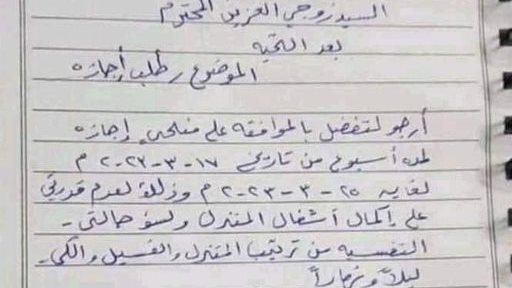 السيد زوجي العزيز المحترم
بعد التحيه
الموضوع / طلب أجازه
أرجو التفضل بالموافقه على منحي إجازه
لمده أسبوع من تاريخ ١٧-٣-٢٠٢٣ م
لغايه ٢٥-٣-٢٠٢٣ م وذلك لعدم قدرتي
على إكمال أشغال المنزل ولسوء حالتي -
النفسيه من ترتيب المنزل والغسيل والكي -
ليلاً ونهاراً